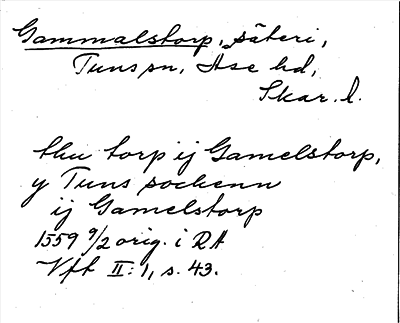 Gammalstorp, säteri,
Tuns sn, Åse hd,
Skar. l.
thu torp ij Gamelstorp,
y Tuns sockenn
ij Gamelstorp
1559 9/2 orig. i RA
Vft II: 1, s. 43.